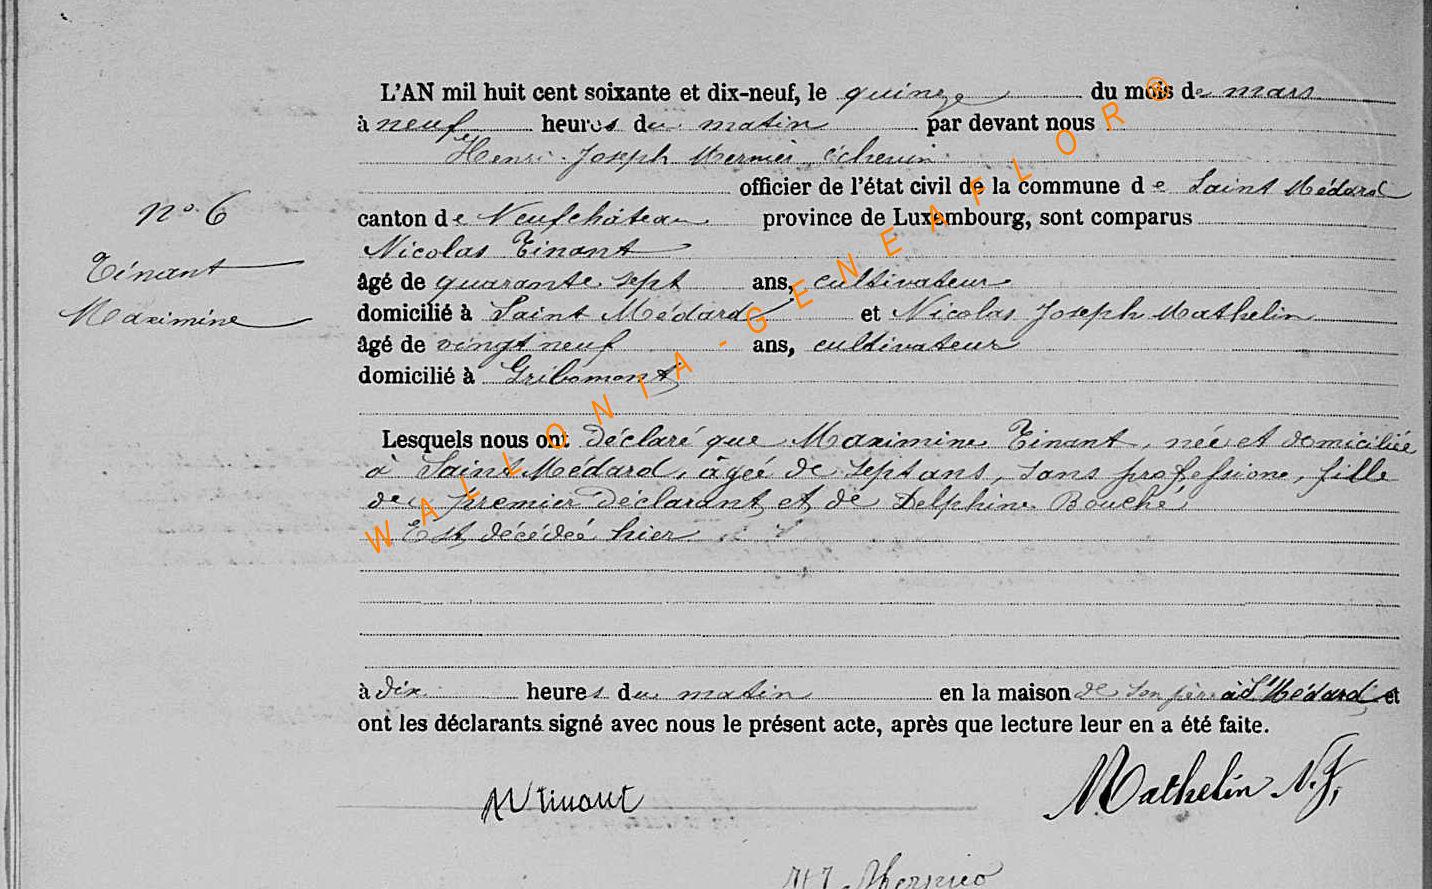 L'AN mil huit cent soixante et dix-neuf, le quinze du mois de mars
à neuf heures du matin par devant nous
Henri Joseph Mernier, échevin
officier de l'état civil de la commune de Saint Médard
N° 6
canton de Neufchâteau province de Luxembourg, sont comparus
Nicolas Tinant
Tinant
âgé de quarante sept ans, cultivateur
Maximine
domicilié à Saint Médard et Nicolas Joseph Mathelin
âgé de vingt neuf ans, cultivateur
domicilié à Gribomont
Lesquels nous ont déclaré que Maximine Tinant, née et domiciliée
à Saint Médard, âgée de sept ans, sans profession, fille
du premier déclarant et de Delphine Bouché
Est décédée hier
à dix heures du matin en la maison de son père à St Médard et
ont les déclarants signé avec nous le présent acte, après que lecture leur en a été faite.
N Tinant
Mathelin N. J.
Mernier
WALLONIA-GENEAFLOR ®